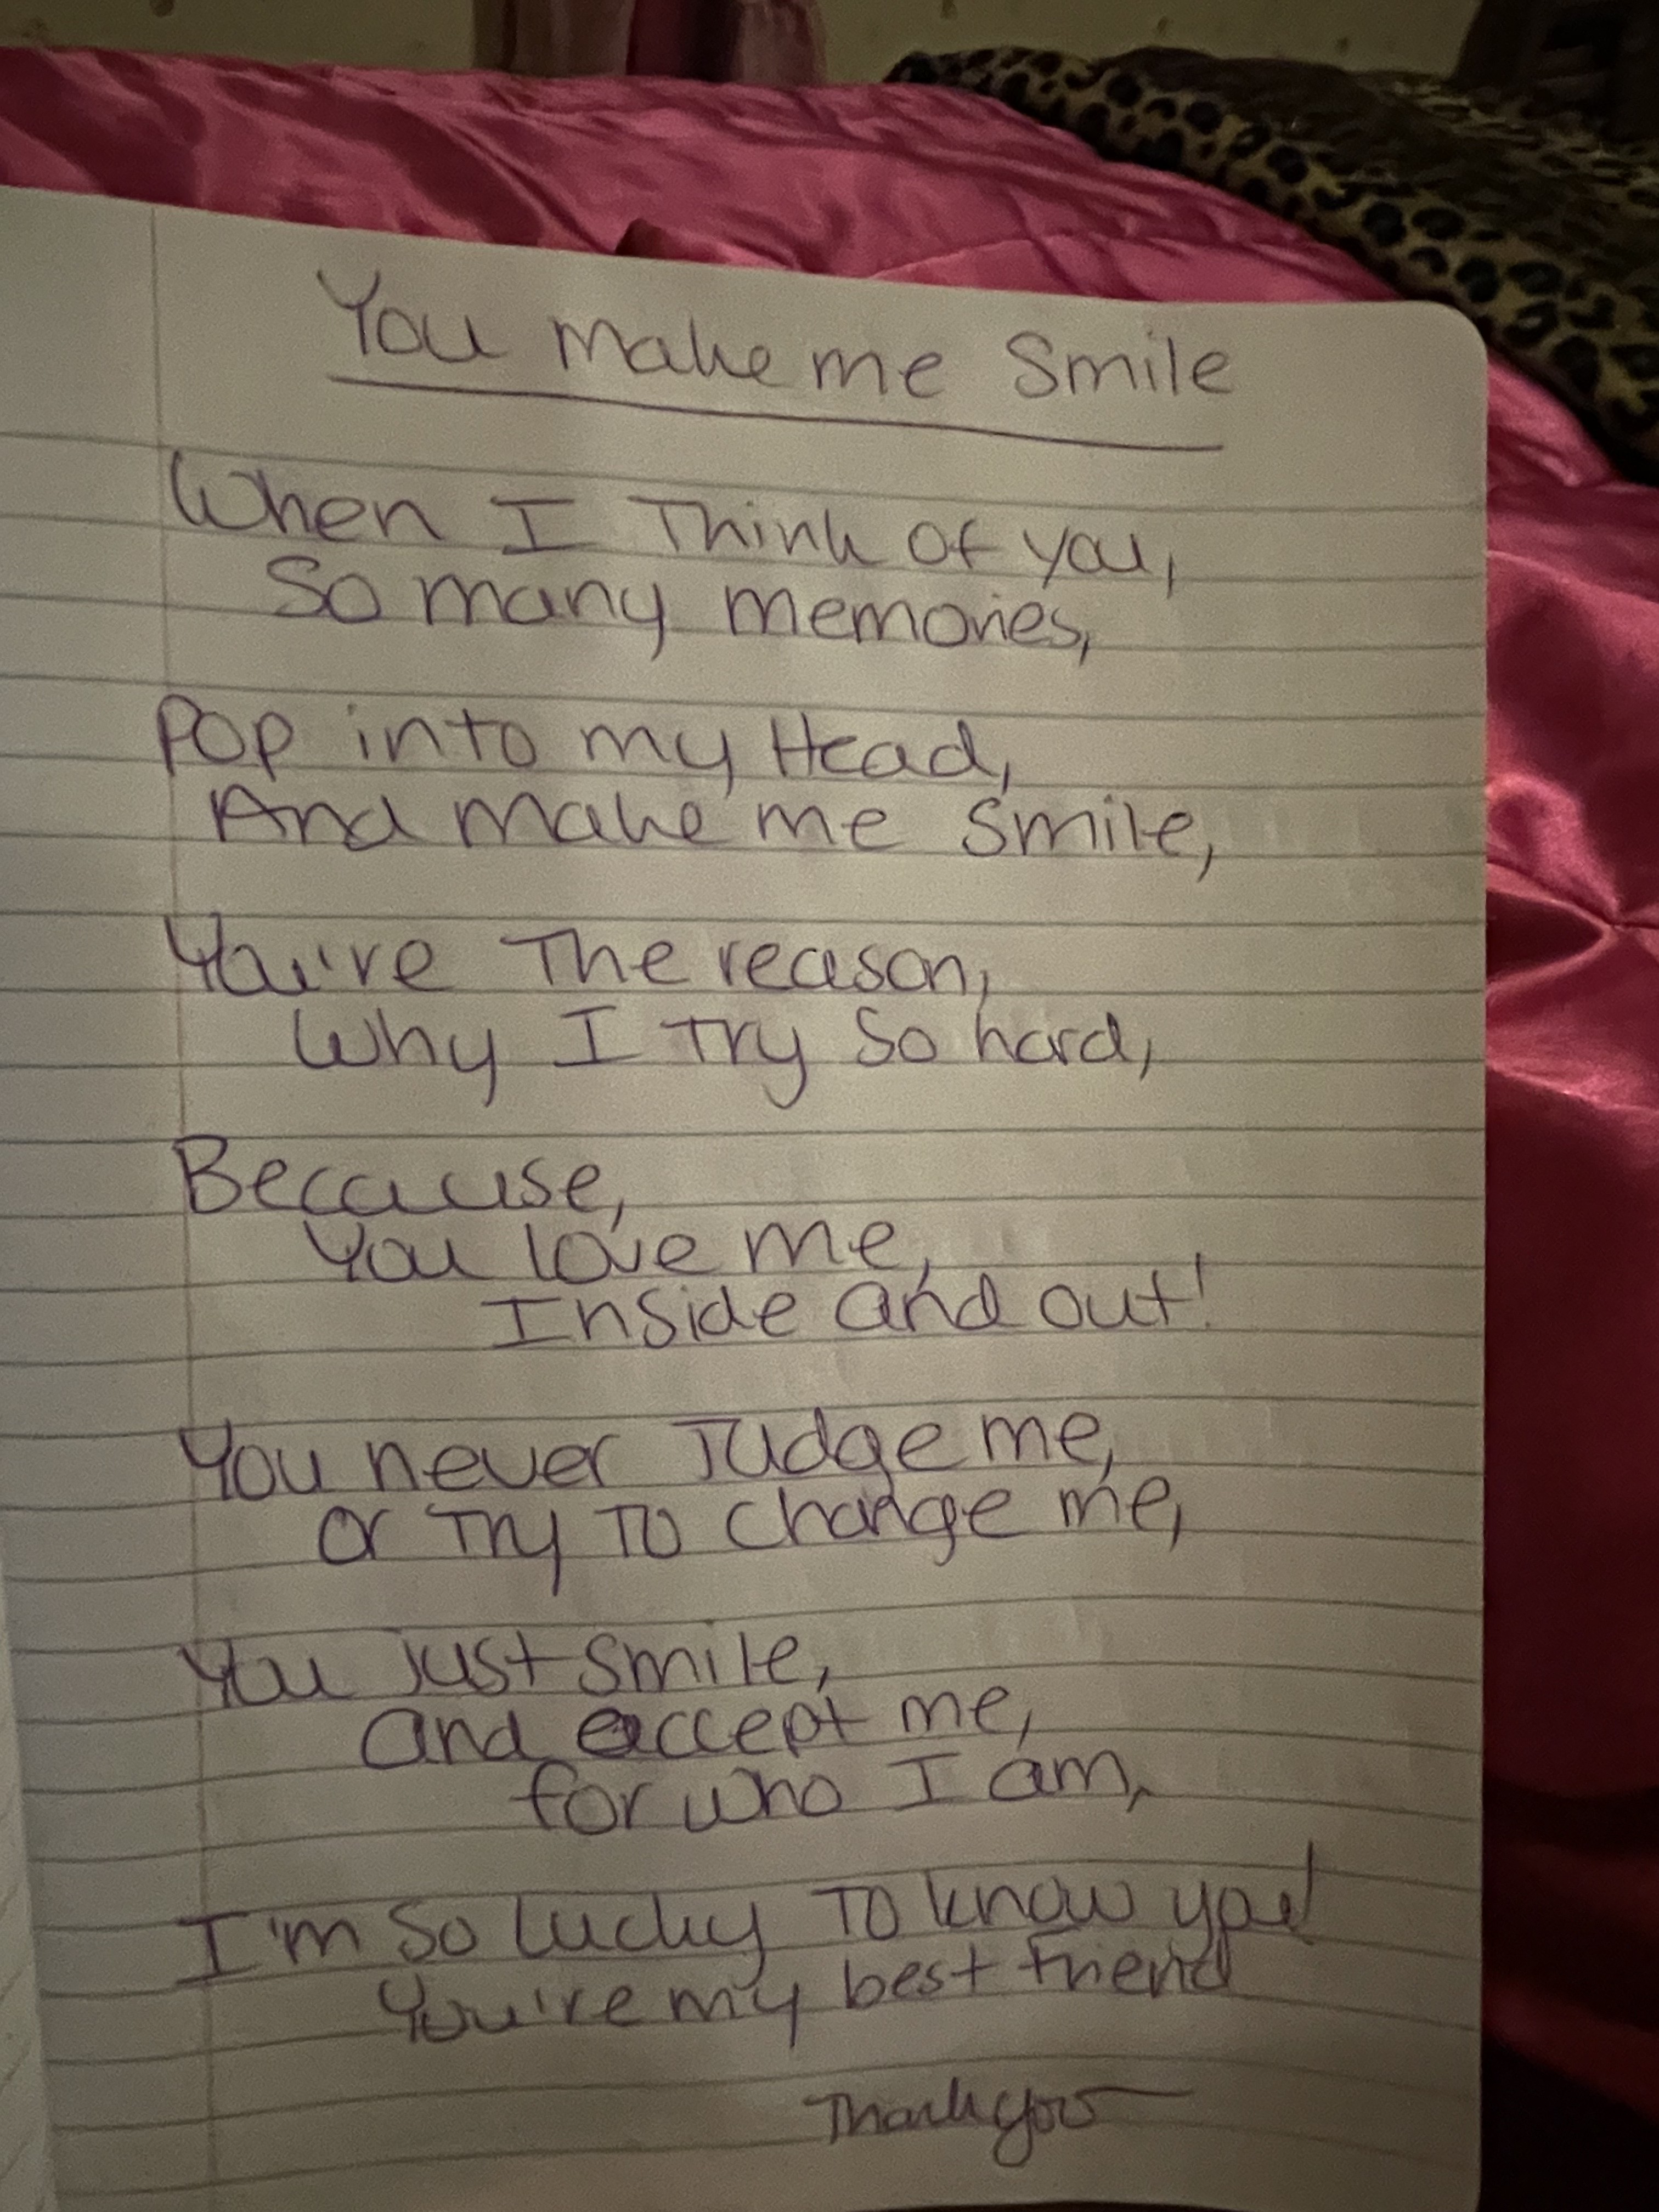 You make me Smile
When I Think of you,
So many memories,
Pop into my Head,
And make me Smile,
You're The reason,
Why I Try So hard,
Because,
You love me,
Inside and out!
You never Judge me,
or Try To change me,
You just smile,
and accept me,
for who I am,
I'm So lucky To know you!
You're my best friend
Thank you